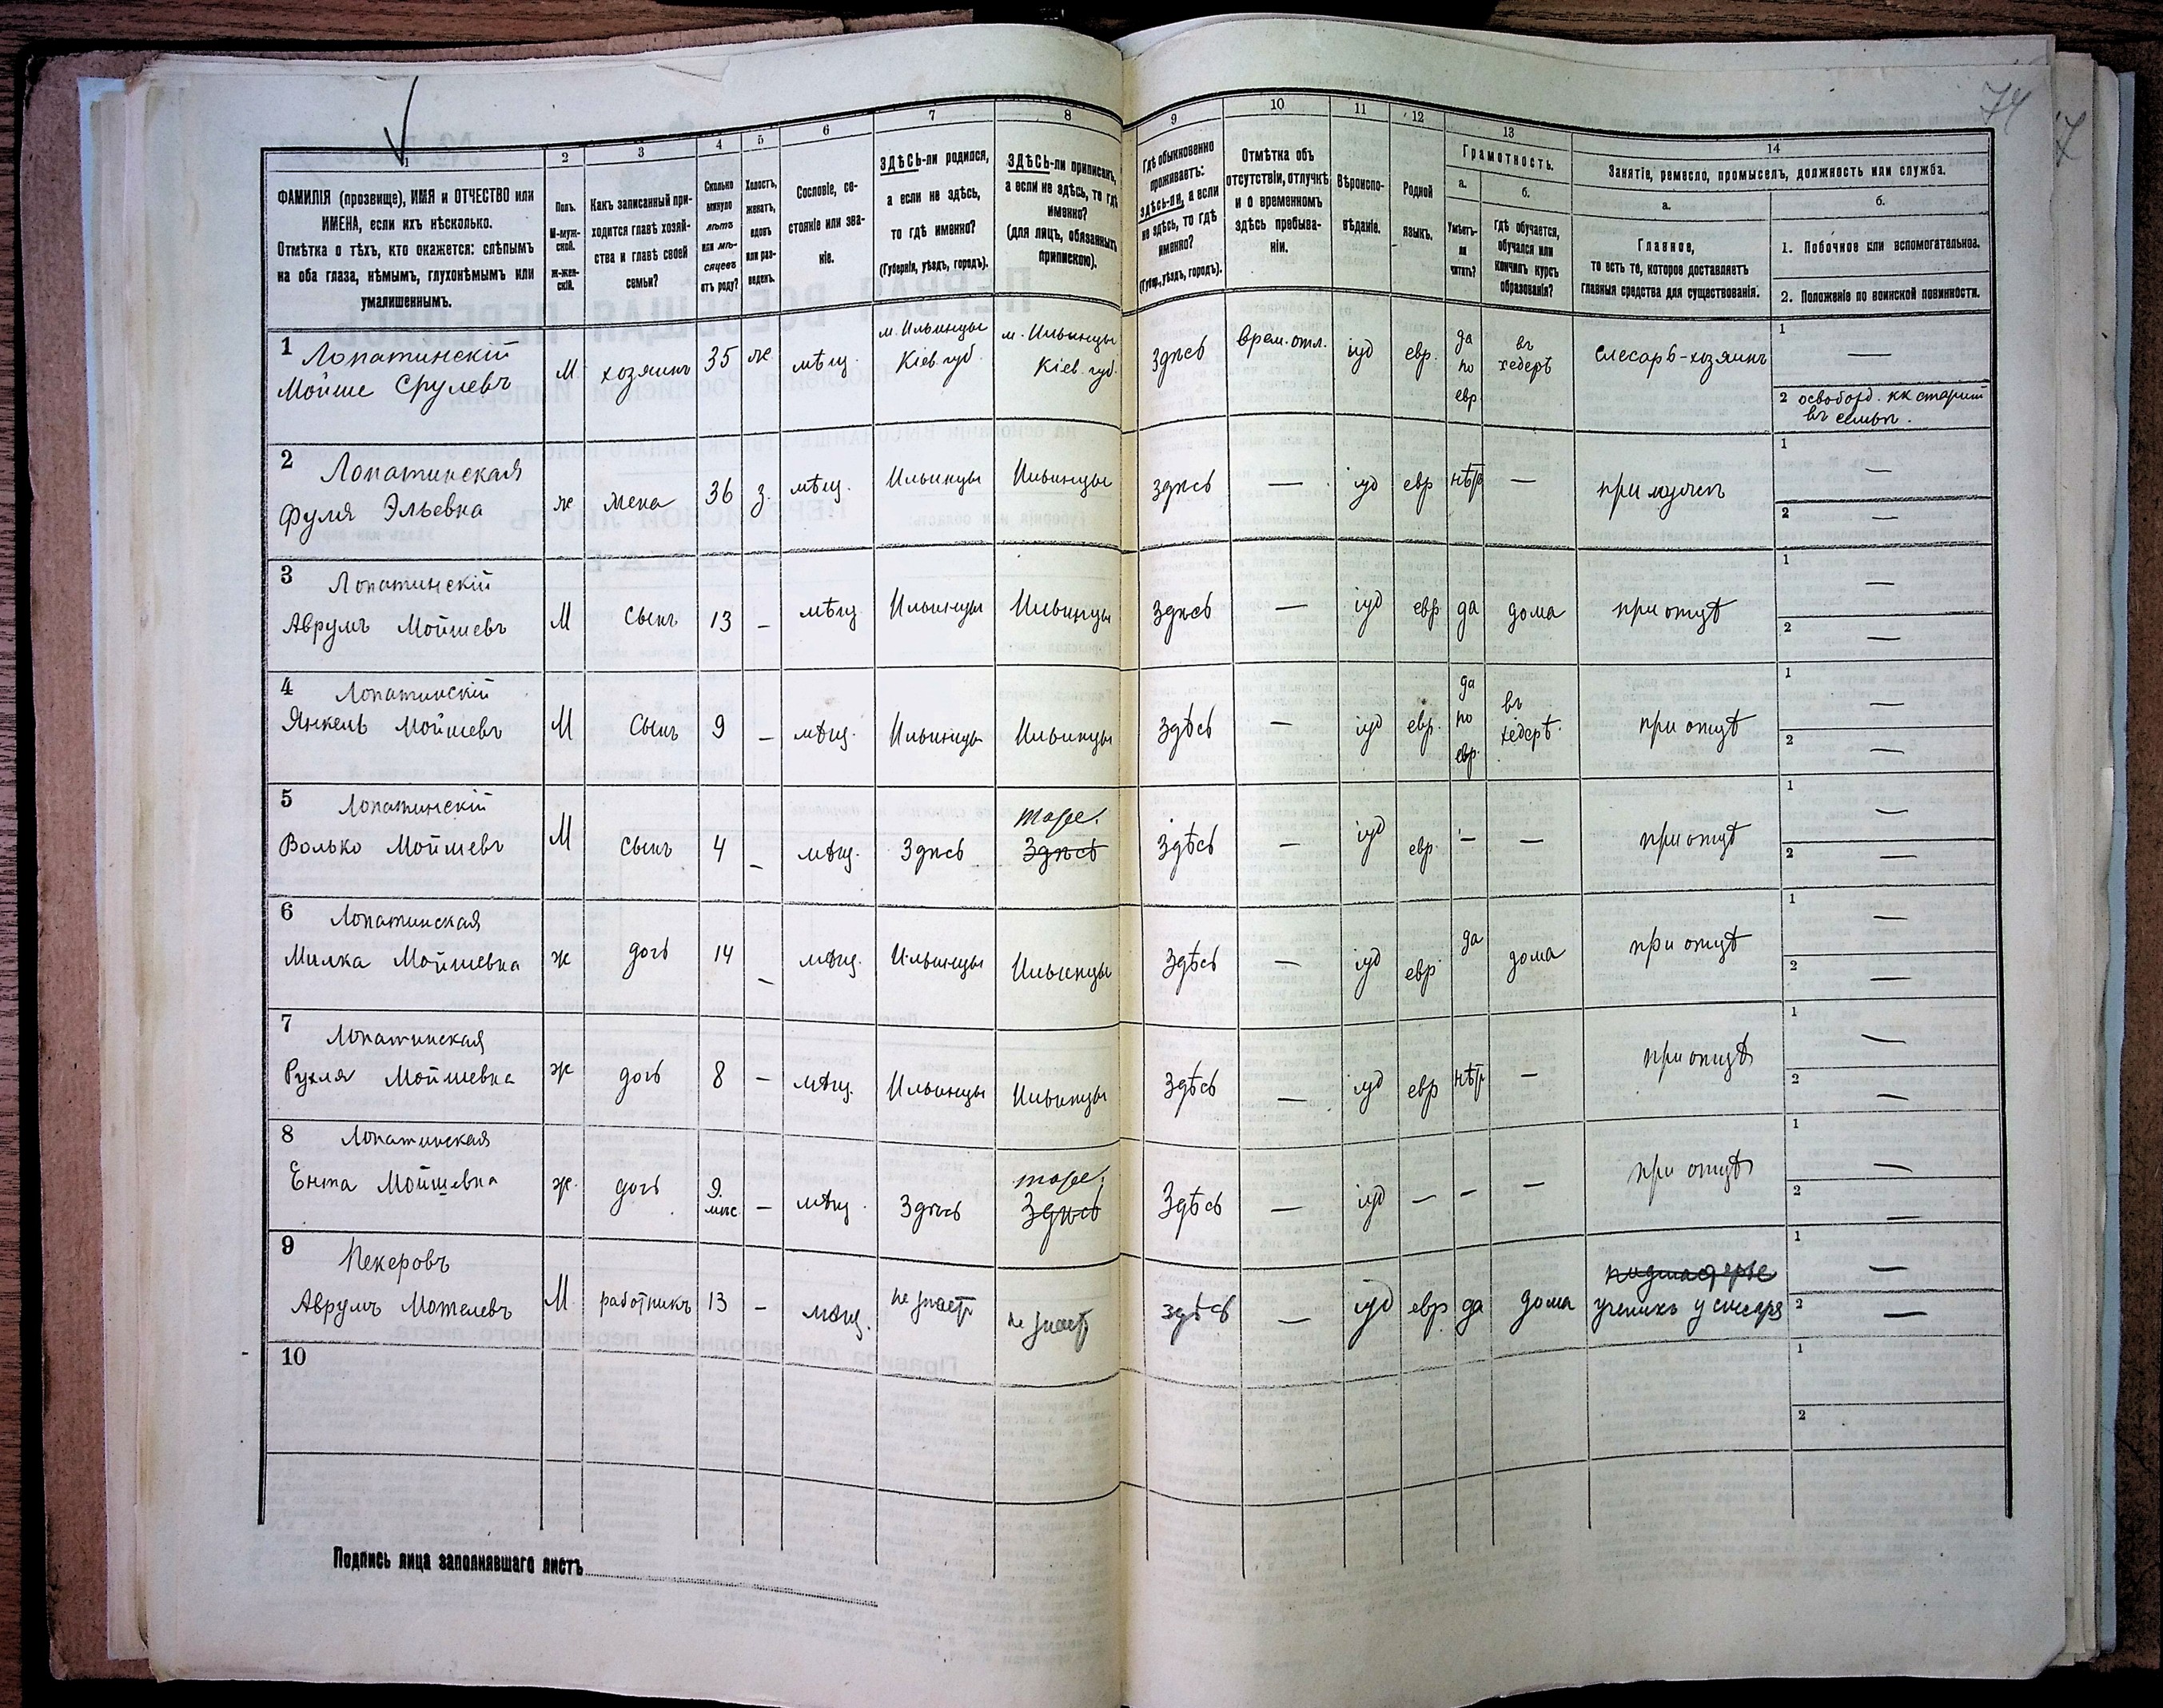 74
1
2
3
4
5
6
7
8
9
10
11
12
13
14
ФАМИЛІЯ (прозвище), ИМЯ и ОТЧЕСТВО или
ИМЕНА, если ихъ нѣсколько.
Отмѣтка о тѣхъ, кто окажется: слѣпымъ
на оба глаза, нѣмымъ, глухонѣмымъ или
умалишеннымъ.
Полъ.
М-муж-
ской.
Ж-жен-
скій.
Какъ записанный при-
ходится главѣ хозяй-
ства и главѣ своей
семьи?
Сколько
минуло
лѣтъ
или мѣ-
сяцевъ
отъ роду?
Холостъ,
женатъ,
вдовъ
или раз-
веденъ.
Сословіе, со-
стояніе или зва-
ніе.
ЗДѢСЬ-ли родился,
а если не здѣсь,
то гдѣ именно?
(Губернія, уѣздъ, городъ).
ЗДѢСЬ-ли приписанъ,
а если не здѣсь, то гдѣ
именно?
(для лицъ, обязанныхъ
припискою).
Гдѣ обыкновенно
проживаетъ:
здѣсь-ли, а если
не здѣсь, то гдѣ
именно?
(Губер., уѣздъ, городъ).
Отмѣтка объ
отсутствіи, отлучкѣ
и о временномъ
здѣсь пребыва-
ніи.
Вѣроиспо-
вѣданіе.
Родной
языкъ.
Грамотность.
а.
Умѣетъ-
ли
читать?
б.
Гдѣ обучается,
обучался или
кончилъ курсъ
образованія?
Занятіе, ремесло, промыселъ, должность или служба.
а.
Главное,
то есть то, которое доставляетъ
главныя средства для существованія.
б.
1. Побочное или вспомогательное.
2. Положеніе по воинской повинности.
1 Лопатинскій
Мойше Срулевъ
М хозяинъ 35 же мѣщ.
м. Ильинцы
Кіев. губ.
м. Ильинцы
Кіев. губ.
здѣсь врем. отл. іуд евр.
да
по
евр
въ
хедерѣ
слесарь-хозяинъ
1 —
2 освобожд. кк старшій
въ семьѣ.
2 Лопатинская
Фуля Эльевна
ж жена 36 з. мѣщ. Ильинцы Ильинцы здѣсь — іуд евр нѣтъ — при мужѣ
1 —
2 —
3 Лопатинскій
Аврумъ Мойшевъ
М Сынъ 13 – мѣщ Ильинцы Ильинцы здѣсь — іуд евр да дома при отцѣ
1 —
2 —
4 Лопатинскій
Янкель Мойшевъ
М Сынъ 9 – мѣщ. Ильинцы Ильинцы здѣсь — іуд евр.
да
по
евр.
въ
хедерѣ.
при отцѣ
1 —
2 —
5 Лопатинскій
Волько Мойшевъ
М сынъ 4 – мѣщ. Здѣсь
тоже.
Здѣсь
Здѣсь — іуд евр. — — при отцѣ
1 —
2 —
6 Лопатинская
Милка Мойшевна
ж дочь 14 – мѣщ. Ильинцы Ильинцы Здѣсь — іуд евр. да дома при отцѣ
1 —
2 —
7 Лопатинская
Рухля Мойшевна
ж дочь 8 – мѣщ. Ильинцы Ильинцы Здѣсь — іуд евр нѣтъ — при отцѣ
1 —
2 —
8 Лопатинская
Ента Мойшевна
ж. дочь
9.
мѣс
– мѣщ. Здѣсь
тоже.
Здѣсь
Здѣсь — іуд — — — при отцѣ
1 —
2 —
9 Пекеровъ
Аврумъ Мотелевъ
М. работникъ 13 – мѣщ. не знаетъ не знаетъ здѣсь — іуд евр да дома
подмастерье
ученикъ у слесаря
1 —
2 —
10
1
2
Подпись лица заполнявшаго листъ